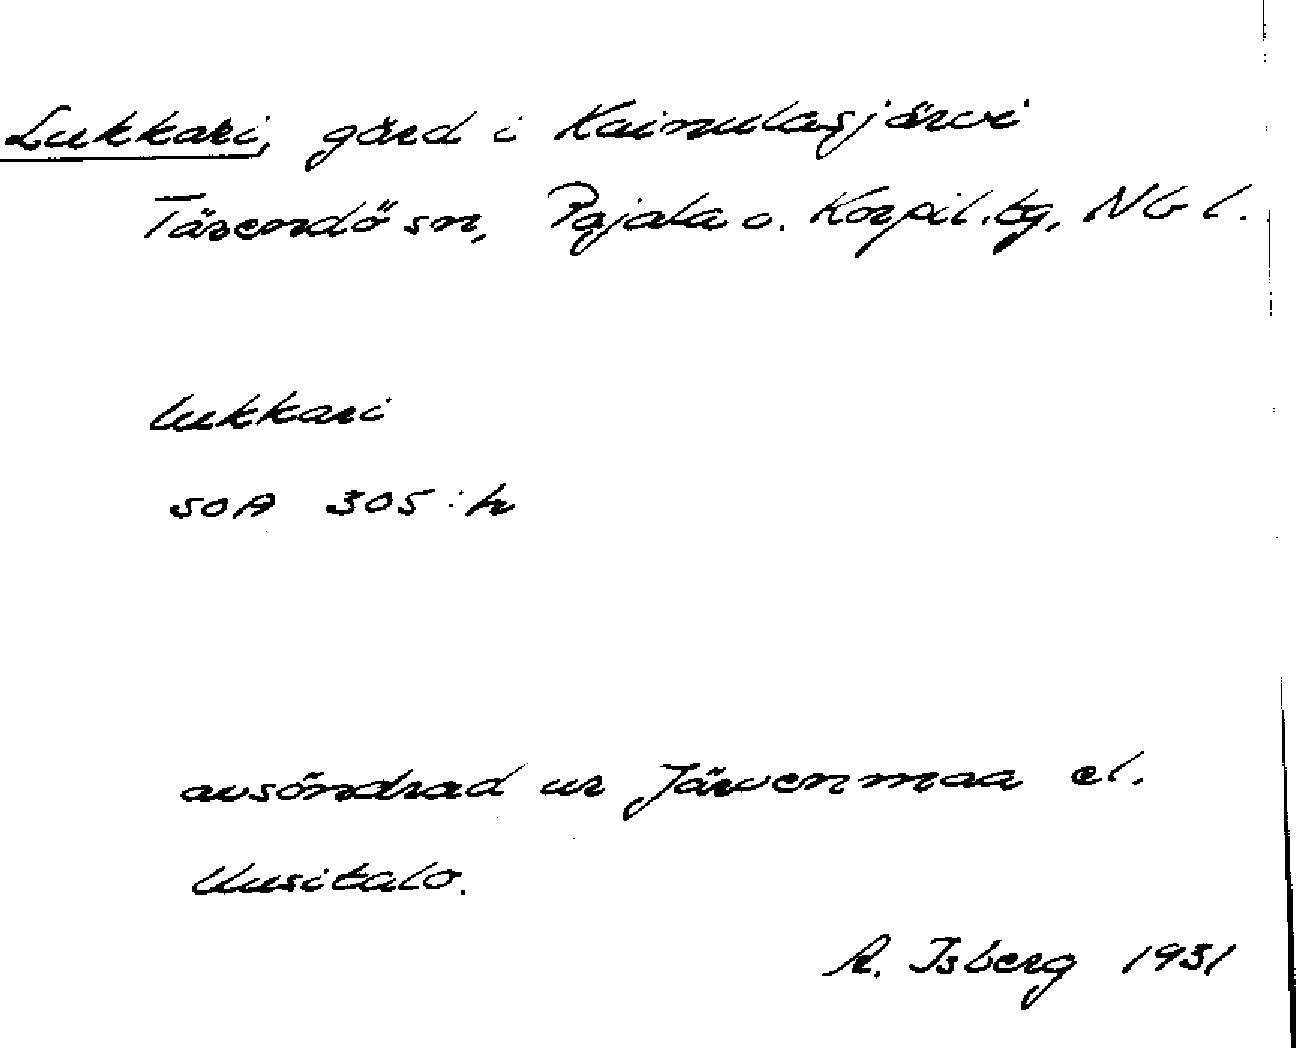 Lukkari, gård i Kainulasjärvi
Tärendö sn, Pajala o. Korpil. tg, NB l.
lukkari
SOA 305:h
avsöndrad ur Järvenmaa el.
Uusitalo.
R. Isberg 1931